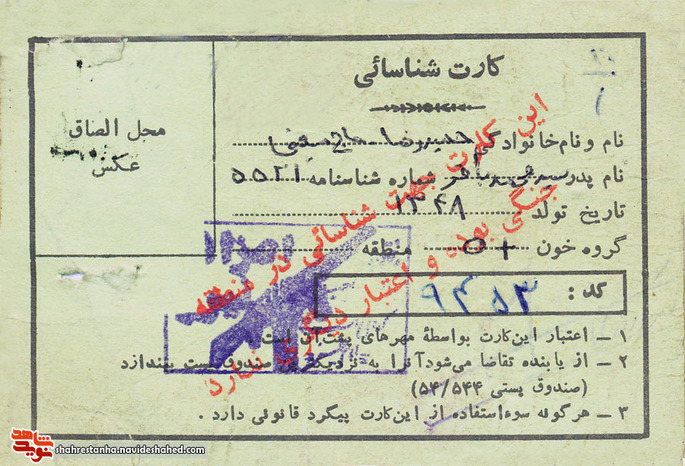 کارت شناسائی
محل الصاق
عکس
نام و نام‌خانوادگی حمیدرضا
نام پدر شماره شناسنامه ۵۵۲۱
تاریخ تولد ۱۳۴۸
گروه خون O+ منطقه
کد : ۹۴۵۳
این کارت جهت شناسائی در منطقه
جنگی بوده و اعتبار دیگری ندارد
۱ ـ اعتبار این‌کارت بواسطهٔ مهرهای پشت آن است.
۲ ـ از یابنده تقاضا می‌شود آنرا به صندوق پست بیندازد
(صندوق پستی ۵۴/۵۴۴)
۳ ـ هرگونه سوءاستفاده از این‌کارت پیگرد قانونی دارد .
نوید شاهد
shahrestanha.navideshahed.com